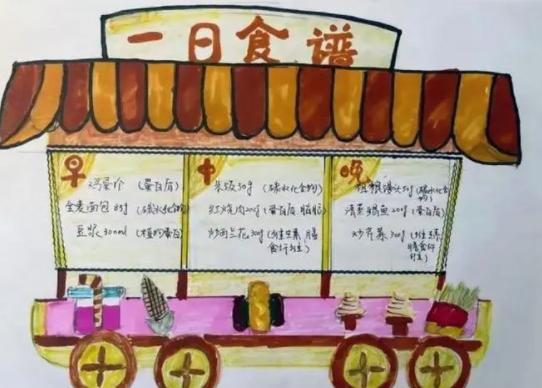 一日食谱
早
鸡蛋1个 (蛋白质)
全麦面包 (碳水化合物)
豆浆 300ml (植物蛋白)
中
米饭50g (碳水化合物)
红烧肉200g (蛋白质 脂肪)
炒西兰花30g (维生素、膳
食纤维)
晚
粗粮馒头50g (碳水化合
物)
清蒸鲈鱼200g (蛋白质)
炒芹菜300g (维生素
膳食纤
维)